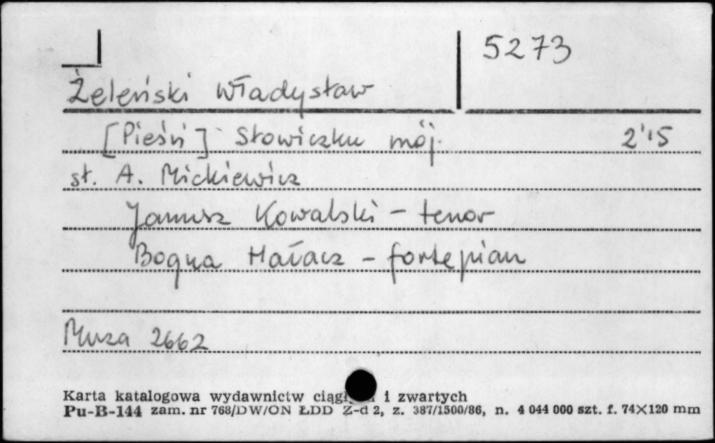 5273
Żeleński Władysław
[Pieśń] Słowiczku mój. 2'15
sł. A. Mickiewicz
Janusz Kowalski - tenor
Bogna Hałacz - fortepian
Muza 2662
Karta katalogowa wydawnictw i zwartych
Pu-B-144 zam. nr 768/DW/ON ŁDD Z-d 2, z. 387/1500/86, n. 4 044 000 szt. f. 74×120 mm